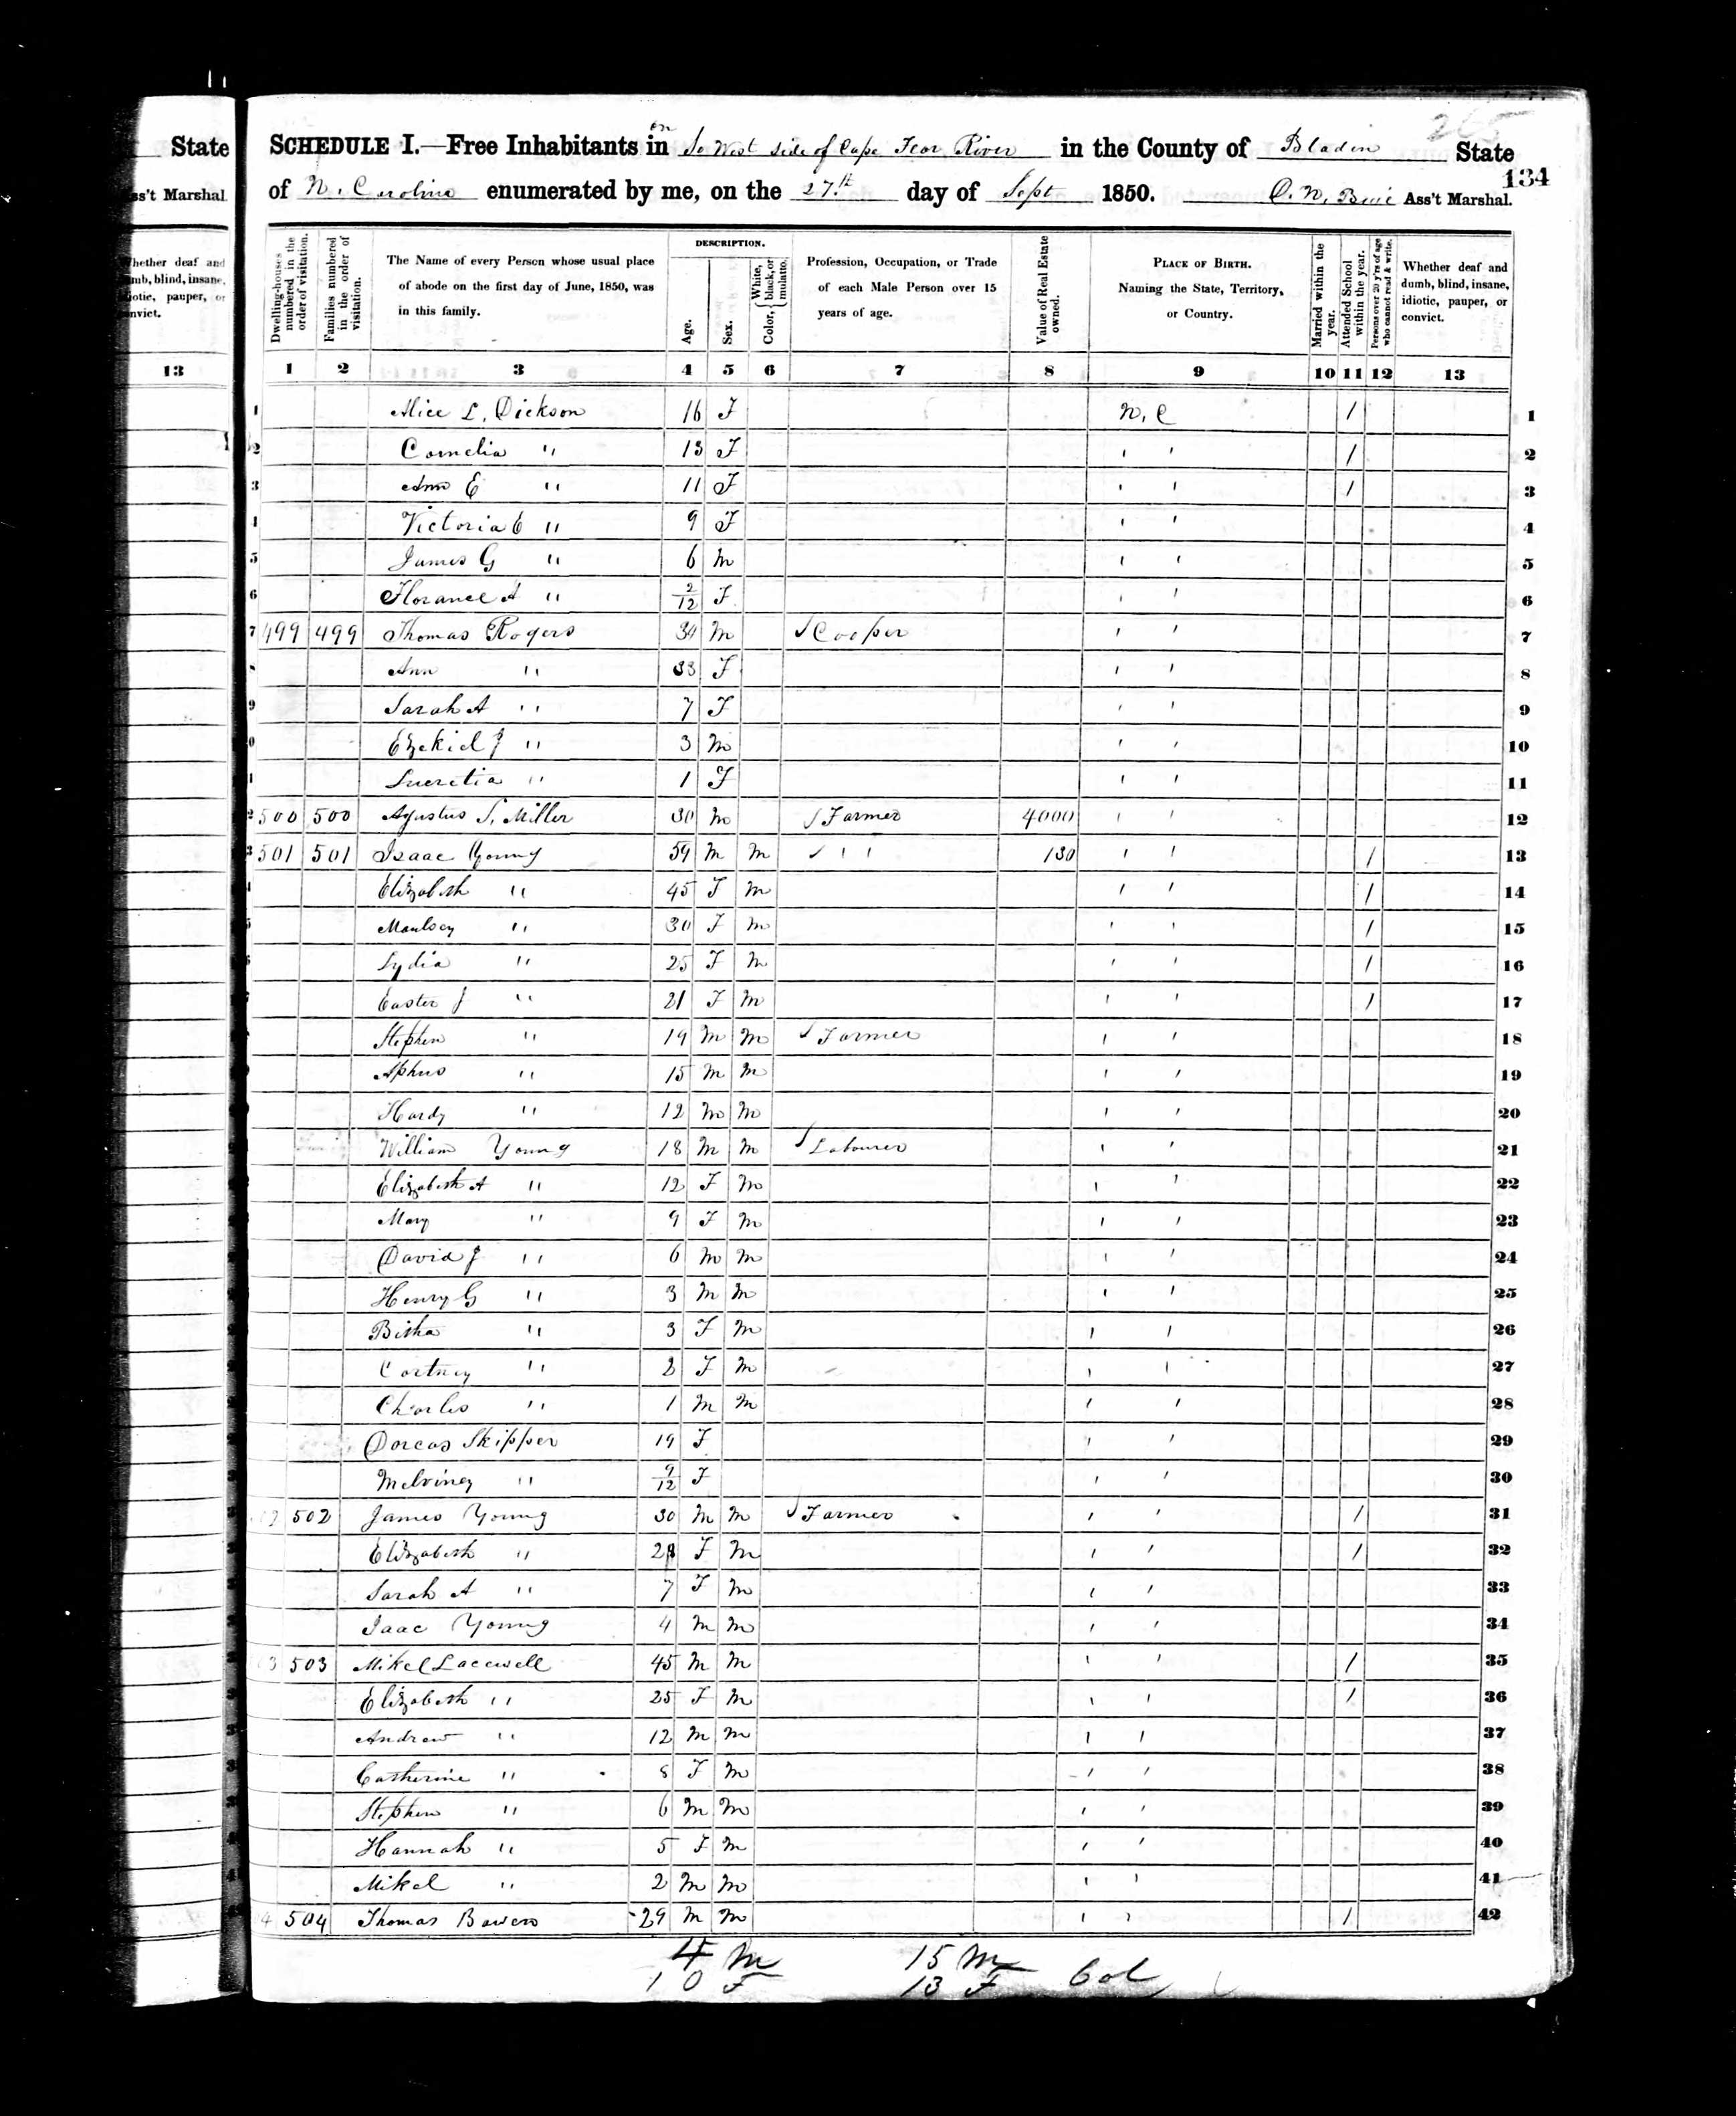 265
State
SCHEDULE I.—Free Inhabitants in on So West side of Cape Fear River in the County of Bladin State
134
ss't Marshal.
of N. Carolina enumerated by me, on the 27th day of Sept 1850. Ass't Marshal.
hether deaf and
mb, blind, insane,
iotic, pauper, or
nvict.
13
Dwelling-houses numbered in the order of visitation.
Families numbered in the order of visitation.
The Name of every Person whose usual place of abode on the first day of June, 1850, was in this family.
DESCRIPTION.
Age.
Sex.
Color, { White, black, or mulatto.
Profession, Occupation, or Trade of each Male Person over 15 years of age.
Value of Real Estate owned.
PLACE OF BIRTH. Naming the State, Territory, or Country.
Married within the year.
Attended School within the year.
Persons over 20 y'rs of age who cannot read & write.
Whether deaf and dumb, blind, insane, idiotic, pauper, or convict.
1 2 3 4 5 6 7 8 9 10 11 12 13
1 Alice L. Dickson 16 F N. C / 1
2 Cornelia " 13 F ' ' / 2
3 Ann E " 11 F ' ' / 3
4 Victoria C " 9 F ' ' 4
5 James G " 6 M ' ' 5
6 Florance A " 2/12 F ' ' 6
7 499 499 Thomas Rogers 34 M ✓ Cooper ' ' 7
Ann " 33 F ' ' 8
9 Sarah A " 7 F ' ' 9
Ezekiel J " 3 M ' ' 10
Lucretia " 1 F ' ' 11
500 500 Agustus S. Miller 30 M ✓ Farmer 4000 ' ' 12
501 501 Isaac Young 59 M M ✓ ' ' 130 ' ' / 13
Elizabeth " 45 F M ' ' / 14
Moulsey " 30 F M ' ' / 15
Lydia " 25 F M ' ' / 16
Easter J " 21 F M ' ' / 17
Stephen " 19 M M ✓ Farmer ' ' 18
" 15 M M ' ' 19
Hardy " 12 M M ' ' 20
William Young 18 M M ✓ Labourer ' ' 21
Elizabeth A " 12 F M ' ' 22
Mary " 9 F M ' ' 23
David J " 6 M M ' ' 24
Henry G " 3 M M ' ' 25
Bitha " 3 F M ' ' 26
Cortney " 2 F M ' ' 27
Charles " 1 M M ' ' 28
Dorcas Skipper 19 F ' ' 29
Melviney " 9/12 F ' ' 30
2 502 James Young 30 M M ✓ Farmer ' ' / 31
Elizabeth " 28 F M ' ' / 32
Sarah A " 7 F M ' ' 33
Isaac Young 4 M M ' ' 34
3 503 Mikel Lacewell 45 M M ' ' / 35
Elizabeth " 25 F M ' ' / 36
Andrew " 12 M M ' ' 37
Catherine " 8 F M ' ' 38
Stephen " 6 M M ' ' 39
Hannah " 5 F M ' ' 40
Mikel " 2 M M ' ' 41
4 504 Thomas Bowers 29 M M ' ' / 42
4 M 15 M
10 F 13 F Col